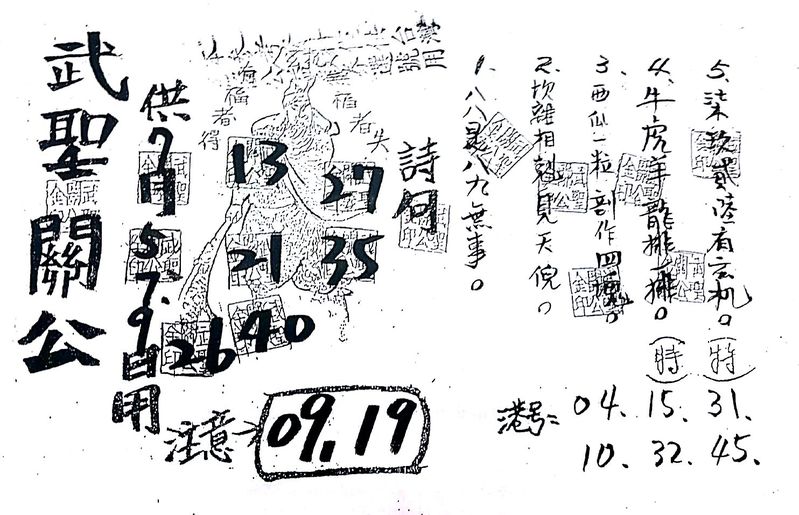 武聖關公
供7月5.7.9日用
福者得
福者失
13
37
21
35
26
40
詩句
1.八八是八九無事。
2.坎離相剋見天倪。
3.西瓜一粒剖作四塊。
4.牛虎羊龍排一排。(特)
5.柒玖貳陸有玄机。(特)
注意→09.19
港号=04.15.31.
10.32.45.